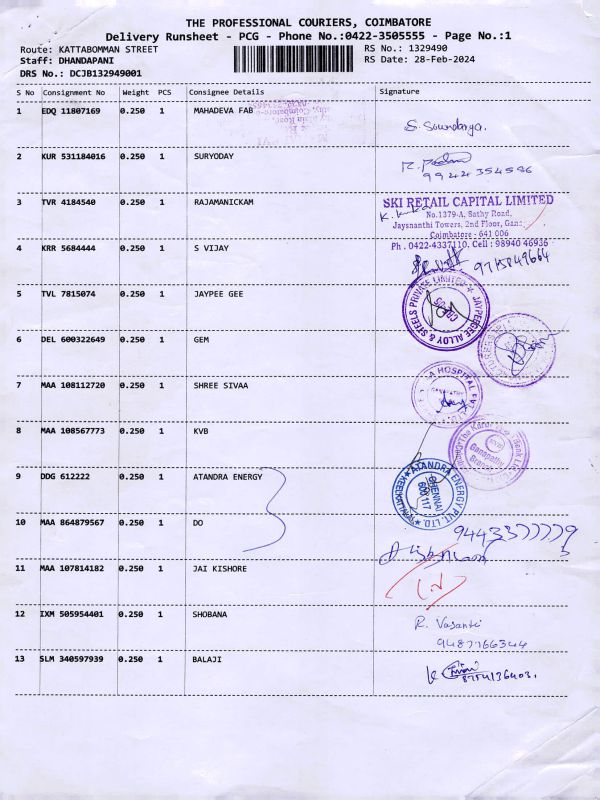 THE PROFESSIONAL COURIERS, COIMBATORE
Delivery Runsheet - PCG - Phone No.:0422-3505555 - Page No.:1
Route: KATTABOMMAN STREET
Staff: DHANDAPANI
DRS No.: DCJB132949001
RS No.: 1329490
RS Date: 28-Feb-2024
S No Consignment No Weight PCS Consignee Details Signature
1 EDQ 11807169 0.250 1 MAHADEVA FAB
S. Soundarya.
2 KUR 531184016 0.250 1 SURYODAY
9944354586
3 TVR 4184540 0.250 1 RAJAMANICKAM
SKI RETAIL CAPITAL LIMITED
No.1379-A, Sathy Road,
Jaysnanthi Towers, 2nd Floor,
Coimbatore - 641 006
Ph . 0422-4337110, Cell : 98940 46936
4 KRR 5684444 0.250 1 S VIJAY
9715849664
5 TVL 7815074 0.250 1 JAYPEE GEE
JAYPEEGEE ALLOY & STEELS PRIVATE LIMITED
6 DEL 600322649 0.250 1 GEM
7 MAA 108112720 0.250 1 SHREE SIVAA
HOSPITAL
GANAPATHY
8 MAA 108567773 0.250 1 KVB
Ganapathy
Branch
9 DDG 612222 0.250 1 ATANDRA ENERGY
ATANDRA ENERGY PVT. LTD.
CHENNAI
600 117
10 MAA 864879567 0.250 1 DO
11 MAA 107814182 0.250 1 JAI KISHORE
12 IXM 505954401 0.250 1 SHOBANA
R. Vasanti
9487766344
13 SLM 340597939 0.250 1 BALAJI
8754136403.